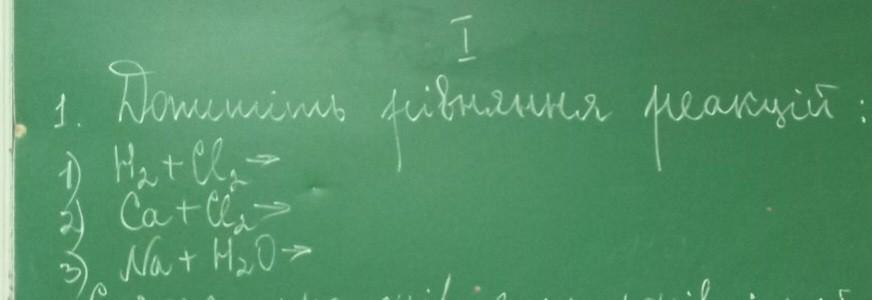 I
1. Допишіть рівняння реакцій:
1) H₂ + Cl₂ →
2) Ca + Cl₂ →
3) Na + H₂O →